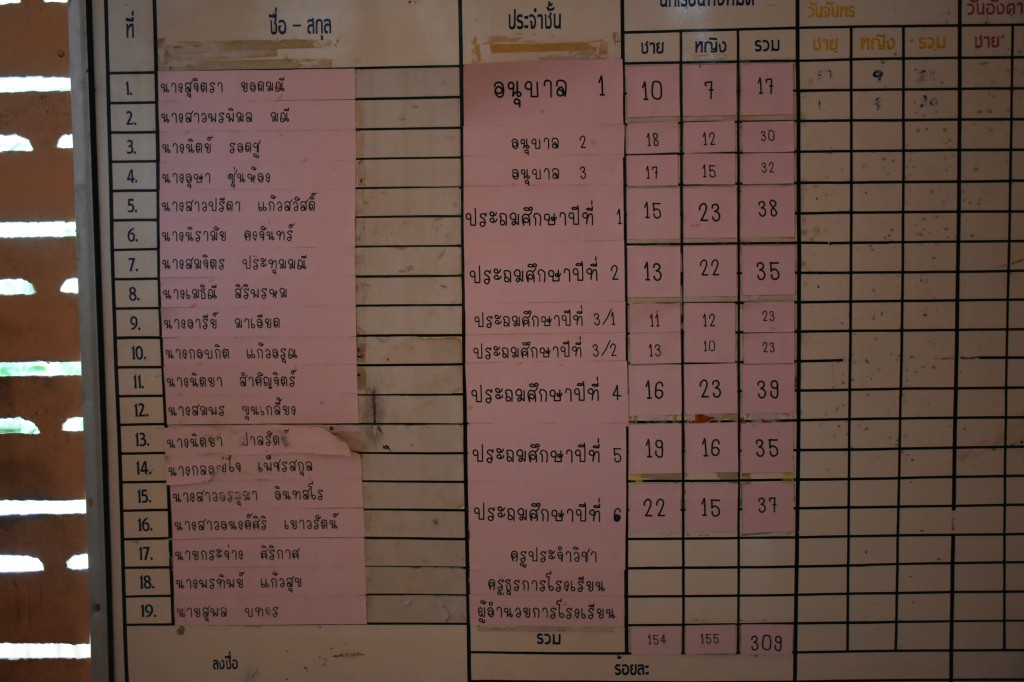 ที่ ชื่อ - สกุล ประจำชั้น นักเรียนทั้งหมด วันจันทร์ วันอังคา
ชาย หญิง รวม ชาย หญิง รวม ชาย
1. นางสุจิตรา ยอดมณี อนุบาล 1 10 7 17 9
2. นางสาวพรพิมล มณี
3. นางนิตย์ รอดชู อนุบาล 2 18 12 30
4. นางอุษา ชุ่นห้อง อนุบาล 3 17 15 32
5. นางสาวปรีดา แก้วสวัสดิ์ ประถมศึกษาปีที่ 1 15 23 38
6. นางนิรามัย คงจันทร์
7. นางสมจิตร ประทุมมณี ประถมศึกษาปีที่ 2 13 22 35
8. นางเมธิณี สิริพรหม
9. นางอารีย์ มาเอียด ประถมศึกษาปีที่ 3/1 11 12 23
10. นางกอบกิต แก้วอรุณ ประถมศึกษาปีที่ 3/2 13 10 23
11. นางนิตยา สำคัญจิตร์ ประถมศึกษาปีที่ 4 16 23 39
12. นางสมพร ขุนเกลี้ยง
13. นางนิตยา ปาลรัตน์ ประถมศึกษาปีที่ 5 19 16 35
14. เพ็ชรสกุล
15. นางสาวอรอุมา อินทสโร ประถมศึกษาปีที่ 6 22 15 37
16. นางสาวอนงค์ศิริ เยาวรัตน์
17. นายกระจ่าง ศิริกาศ ครูประจำวิชา
18. นางพรทิพย์ แก้วสุข ครูธุรการโรงเรียน
19. นายสุพล ผู้อำนวยการโรงเรียน
รวม 154 155 309
ลงชื่อ ร้อยละ